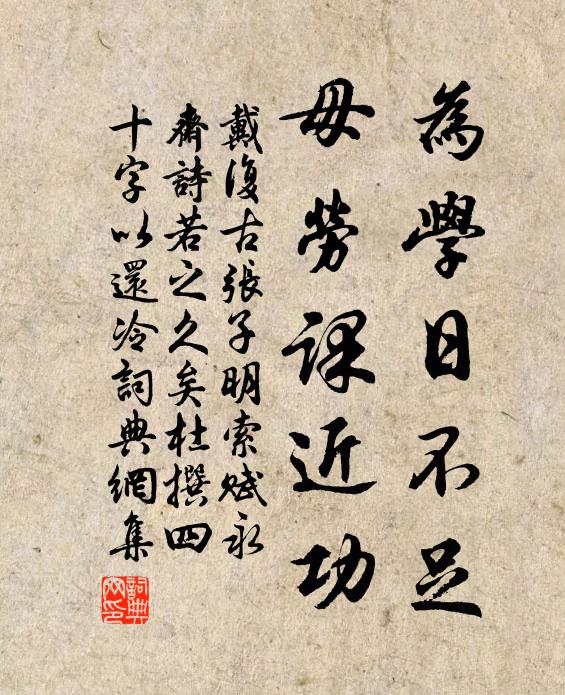 為學日不足
毋勞課近功
戴復古張子明索賦永
齋詩若之久矣杜撰四
十字以還冷詞典網集
詞典
网印